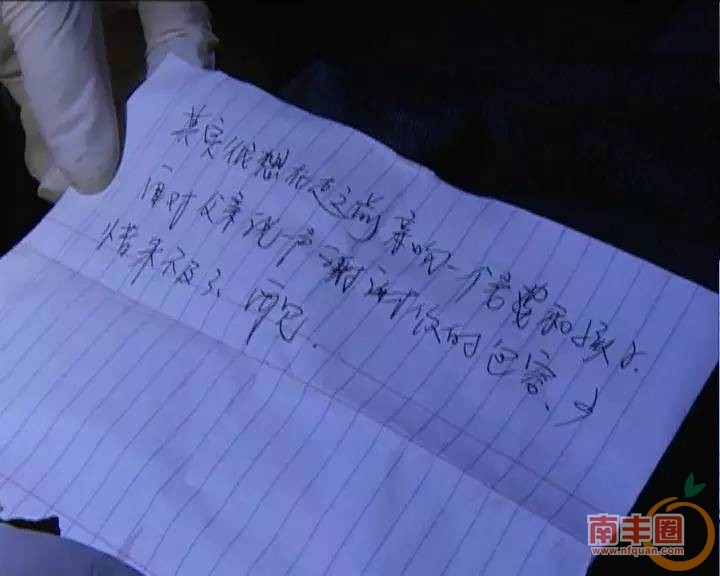 其实很想在走之前亲吻一个老婆和孩子.
再对父亲说一声谢谢你的包容、可
惜来不及了 再见.
南丰圈
www.nfquan.com